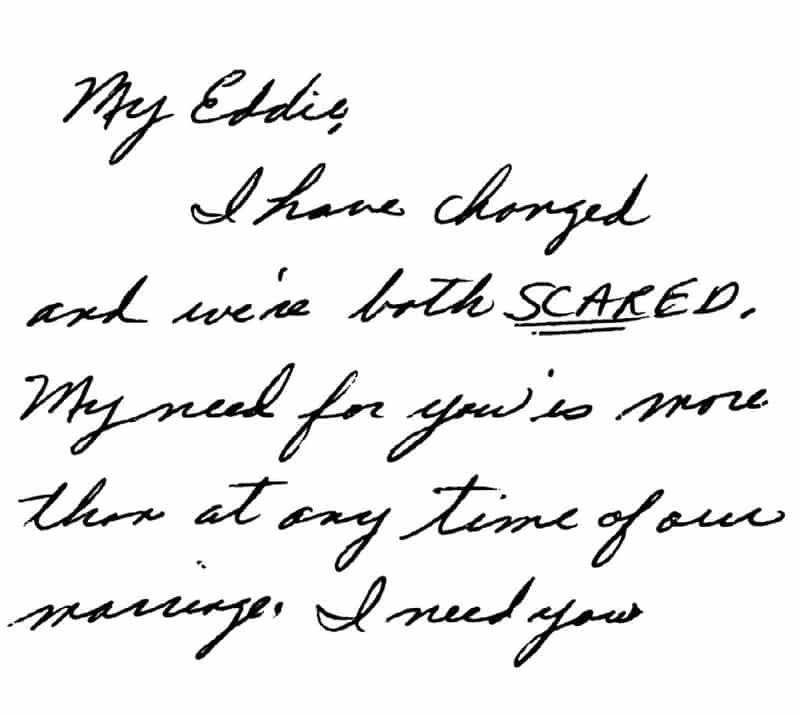 My Eddie,
I have changed
and we're both SCARED.
My need for you is more
than at any time of our
marriage. I need you